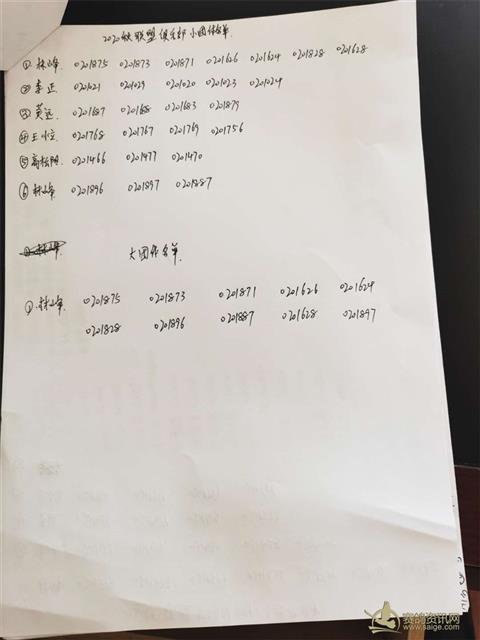 2020铁联盟俱乐部小团体名单
① 林峰 0201875 0201873 0201871 0201626 0201624 0201828 0201628
② 李正 0201021 0201029 0201020 0201023 0201024
③ 英远 0201687 0201688 0201683 0201879
④ 王小立 0201768 0201767 0201769 0201756
⑤ 高松阴 0201466 0201477 0201470
⑥ 林峰 0201896 0201897 0201887
大团体名单
① 林峰 0201875 0201873 0201871 0201626 0201624
0201828 0201896 0201887 0201628 0201897
赛鸽资讯网
www.saige.com